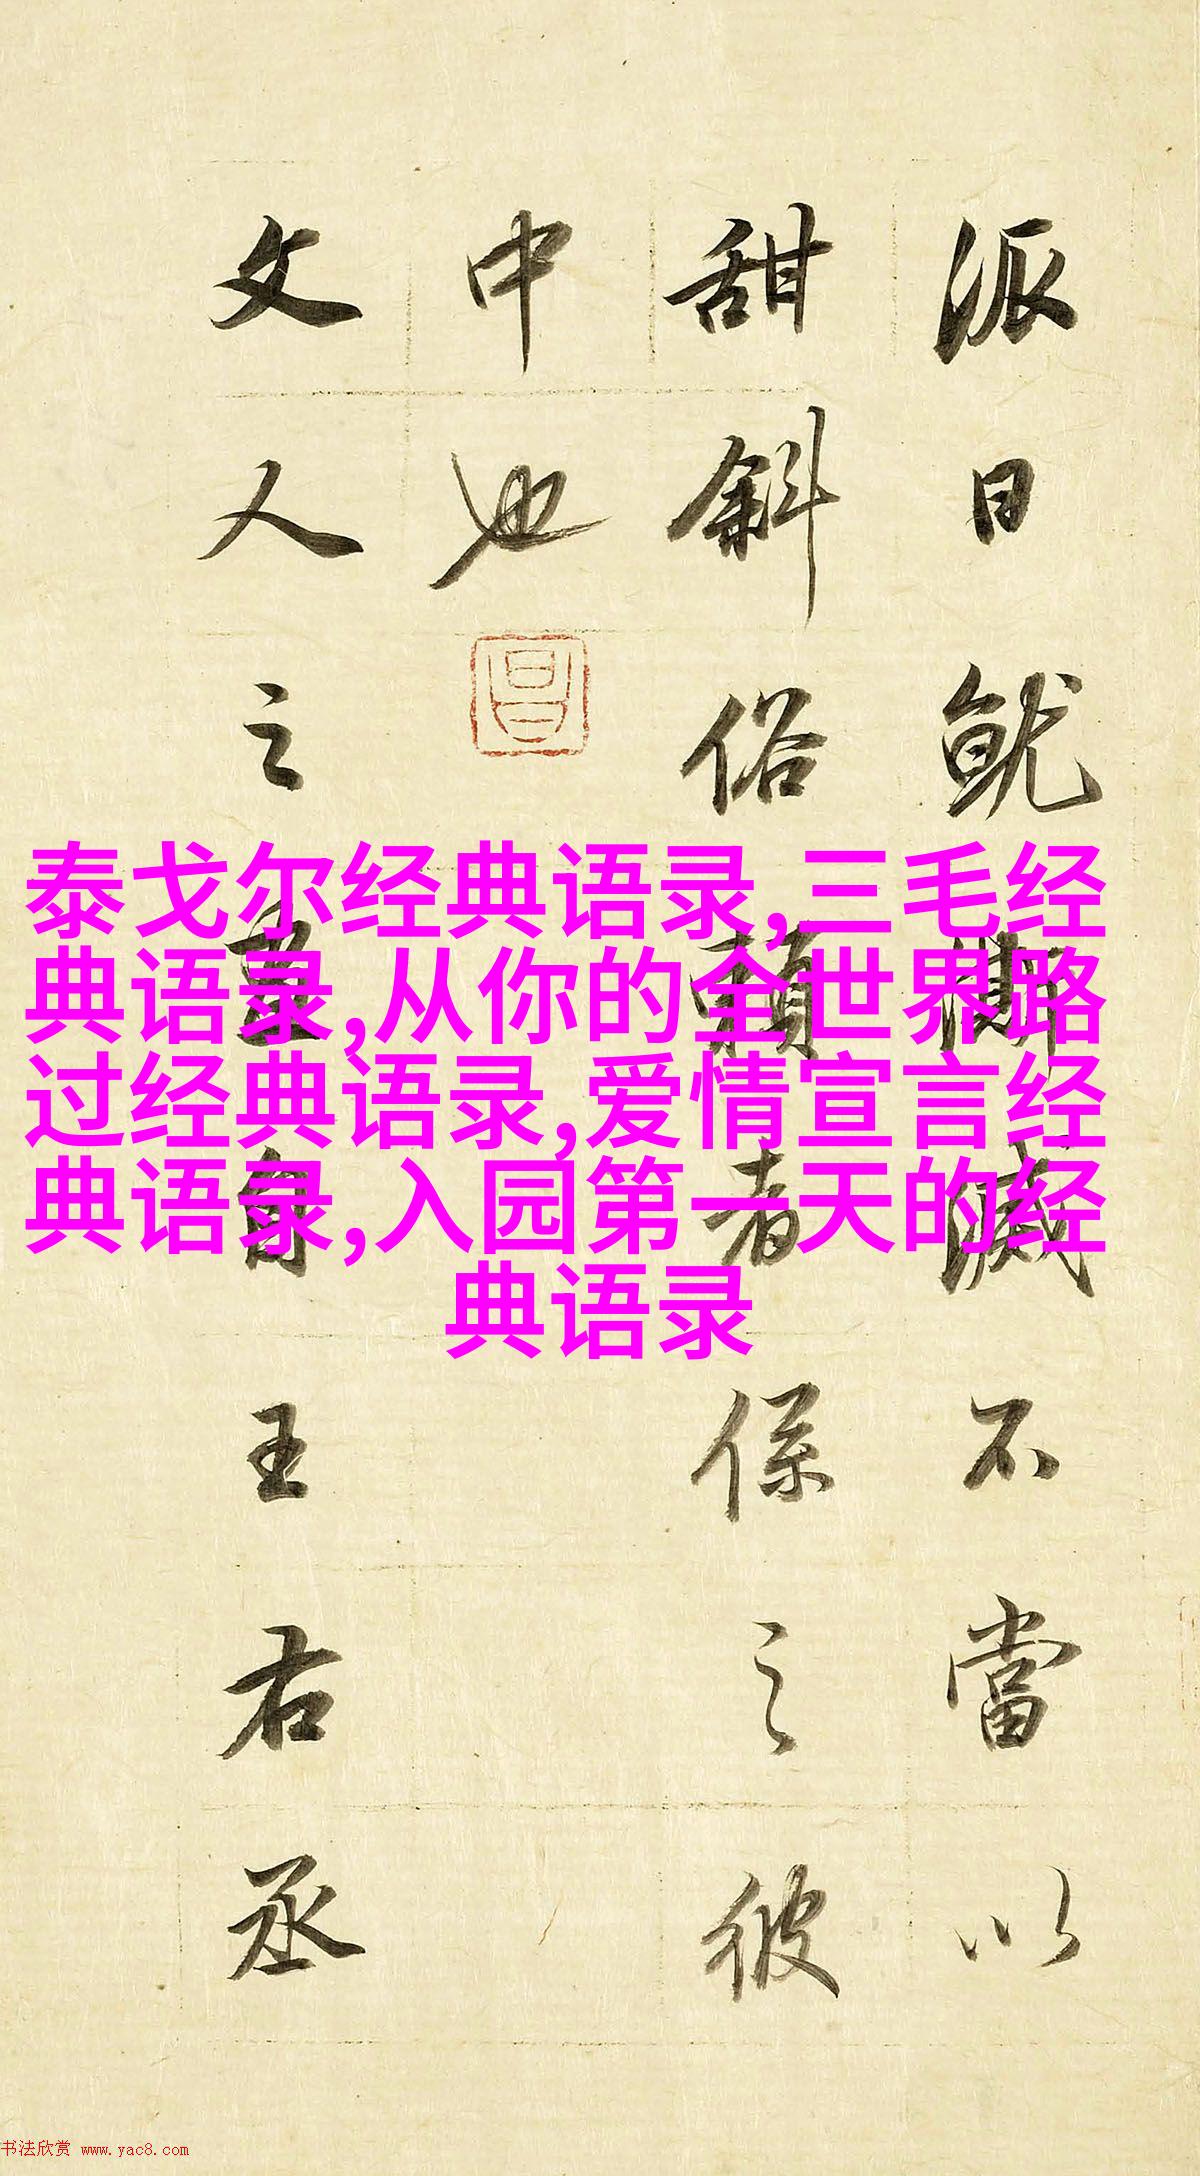 派日就澌滅不當以
甜斜俗賴者係之彼
中也
昌
文人之畫自王右丞
泰戈尔经典语录,三毛经
典语录,从你的全世界路
过经典语录,爱情宣言经
典语录,入园第一天的经
典语录
书法欣赏 www.yac8.com